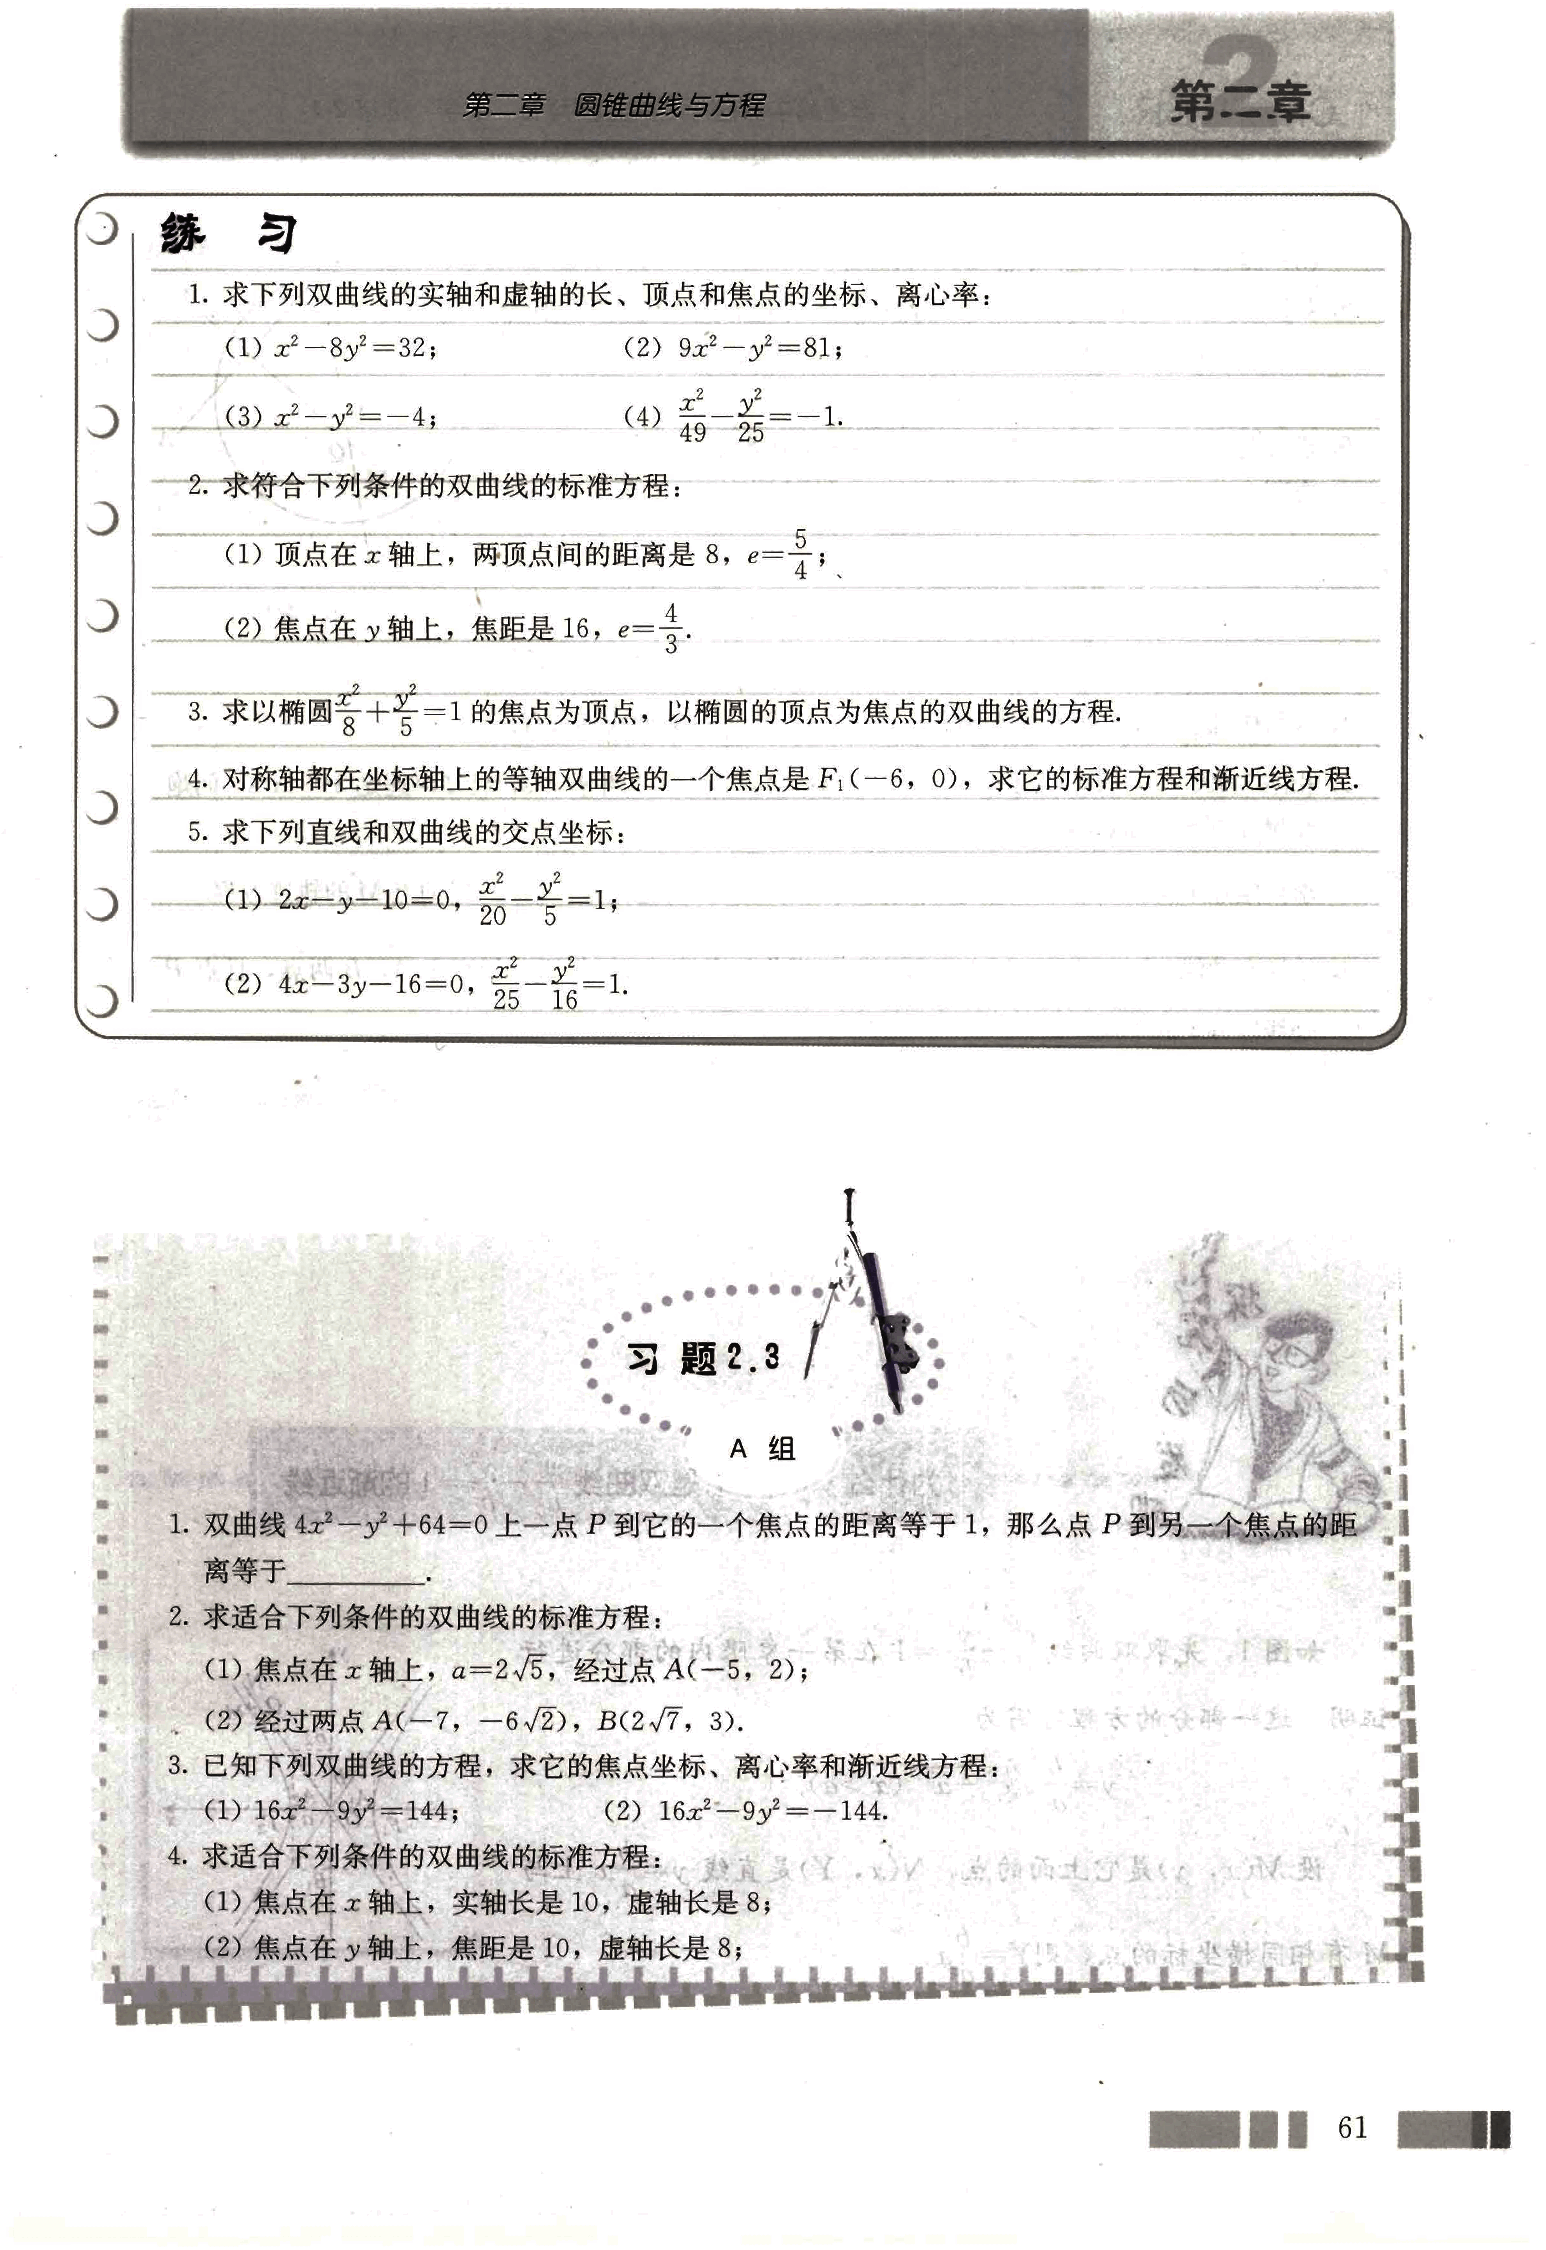 第二章 圆锥曲线与方程
第二章
练 习
1. 求下列双曲线的实轴和虚轴的长、顶点和焦点的坐标、离心率:
(1) x²-8y²=32; (2) 9x²-y²=81;
(3) x²-y²=-4; (4) x²/49-y²/25=-1.
2. 求符合下列条件的双曲线的标准方程:
(1) 顶点在 x 轴上,两顶点间的距离是 8,e=5/4;
(2) 焦点在 y 轴上,焦距是 16,e=4/3.
3. 求以椭圆x²/8+y²/5=1 的焦点为顶点,以椭圆的顶点为焦点的双曲线的方程.
4. 对称轴都在坐标轴上的等轴双曲线的一个焦点是 F₁(-6,0),求它的标准方程和渐近线方程.
5. 求下列直线和双曲线的交点坐标:
(1) 2x-y-10=0,x²/20-y²/5=1;
(2) 4x-3y-16=0,x²/25-y²/16=1.
习 题 2.3
A 组
1. 双曲线 4x²-y²+64=0 上一点 P 到它的一个焦点的距离等于 1,那么点 P 到另一个焦点的距
离等于__________.
2. 求适合下列条件的双曲线的标准方程:
(1) 焦点在 x 轴上,a=2√5,经过点 A(-5,2);
(2) 经过两点 A(-7,-6√2),B(2√7,3).
3. 已知下列双曲线的方程,求它的焦点坐标、离心率和渐近线方程:
(1) 16x²-9y²=144; (2) 16x²-9y²=-144.
4. 求适合下列条件的双曲线的标准方程:
(1) 焦点在 x 轴上,实轴长是 10,虚轴长是 8;
(2) 焦点在 y 轴上,焦距是 10,虚轴长是 8;
61